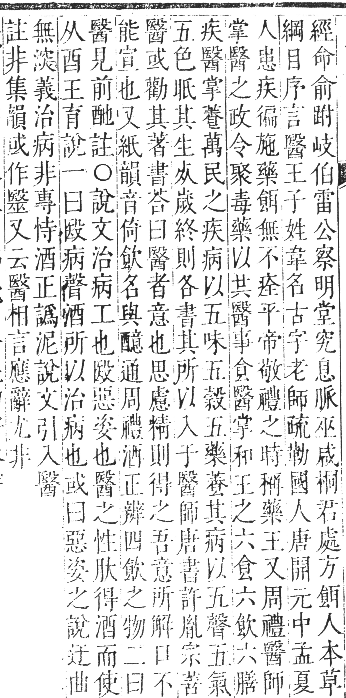 經命俞跗岐伯雷公察明堂究息脈巫咸桐君處方餌人本草
綱目序言醫王子姓韋名古字老師疏勒國人唐開元中孟夏
人患疾徧施藥餌無不痊平帝敬禮之時稱藥王又周禮醫師
掌醫之政令聚毒藥以共醫事食醫掌和王之六食六飮六膳
疾醫掌養萬民之疾病以五味五穀五藥養其病以五聲五氣
五色眡其生死歲終則各書其所以入于醫師唐書許胤宗善
醫或勸其著書荅曰醫者意也思慮精則得之吾意所解口不
能宣也又紙韻音倚飮名與醷通周禮酒正辨四飮之物二曰
醫見前酏註〇說文治病工也殹惡姿也醫之性肰得酒而使
从酉王育說一曰殹病聲酒所以治病也或曰惡姿之說迂曲
無淡義治病非專恃酒正譌泥說文引入醫
註非集韻或作毉又云醫相言應辭尤非